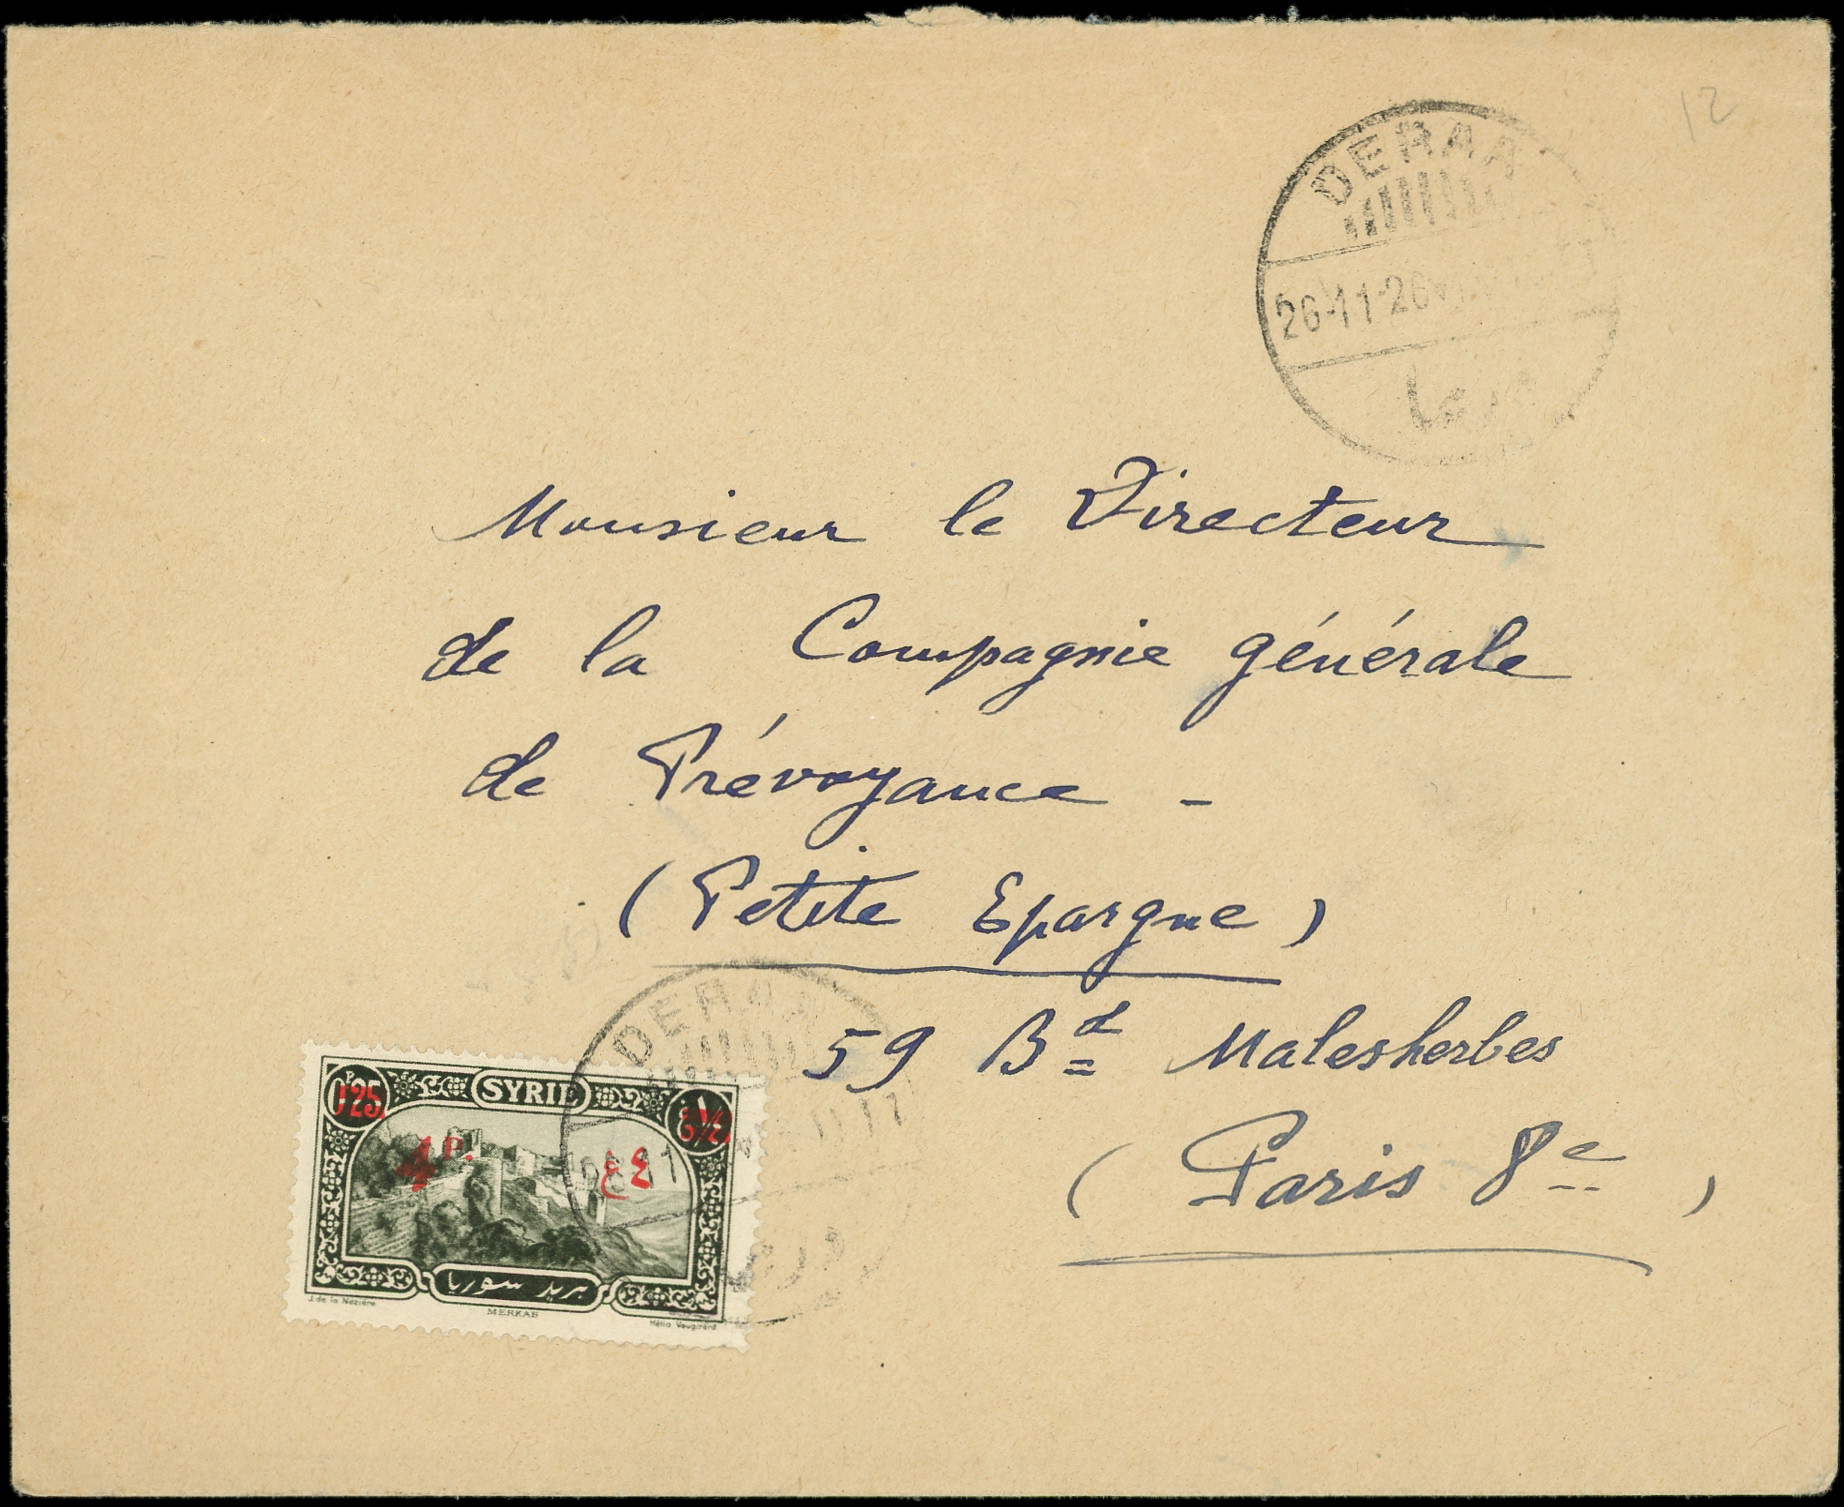 12
DERAA
26-11-26
درعا
Monsieur le Directeur
de la Compagnie générale
de Prévoyance -
(Petite Epargne)
59 Bd Malesherbes
(Paris 8e)
DERAA
SYRIE
0P25
4P.
٤غ
بريد سوريا
J. de la Nézière
MERKAB
Hélio Vaugirard